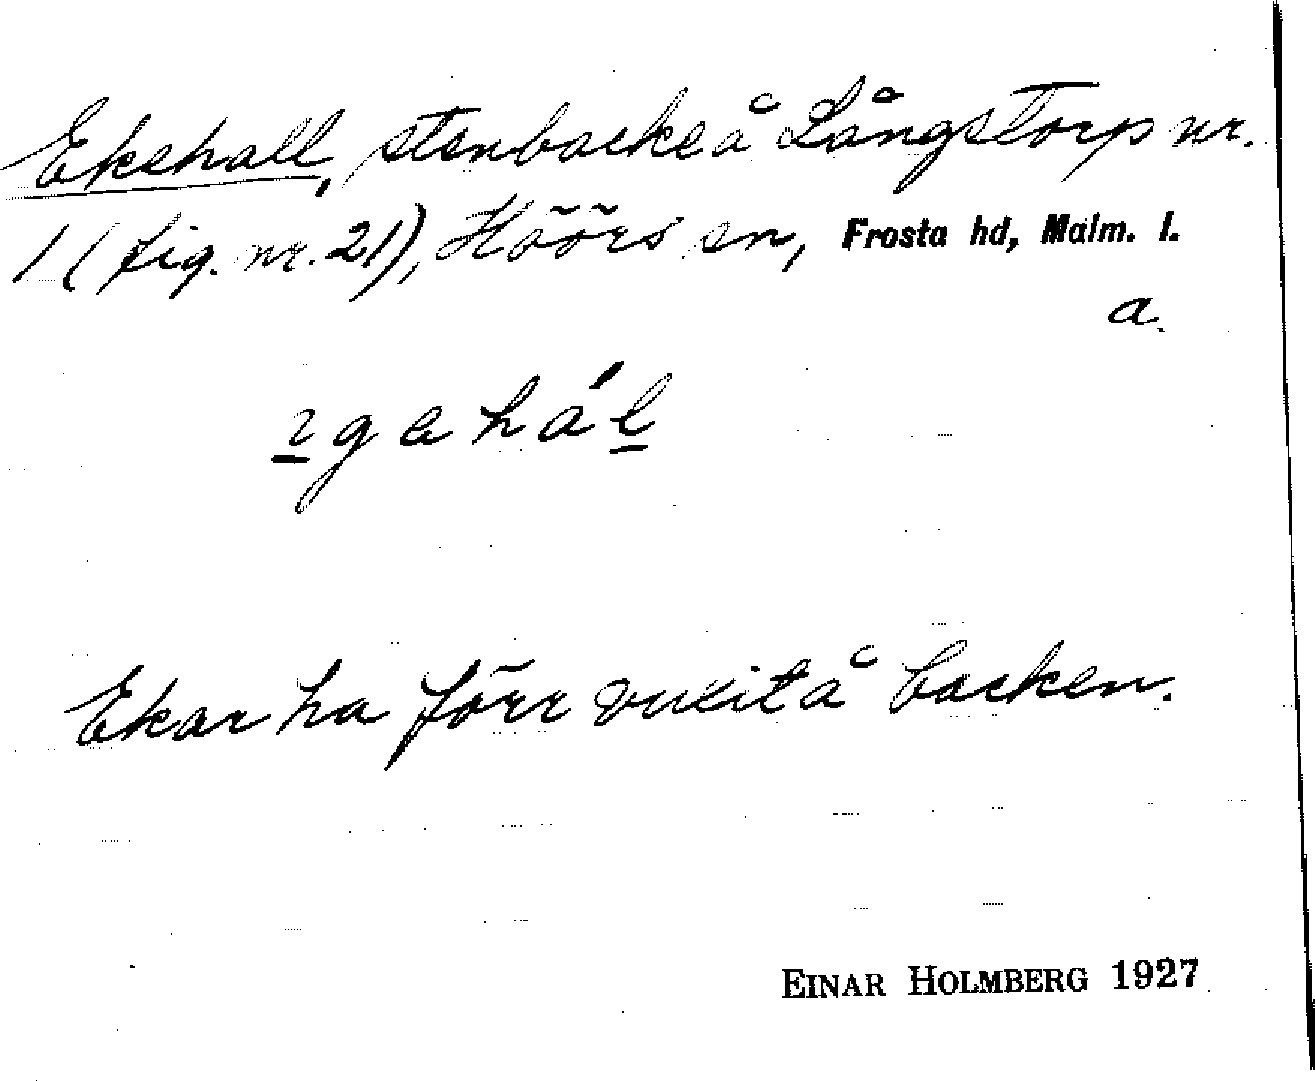 Ekehall, stenbacke å Långstorp nr.
1 (fig. nr. 21), Höörs sn, Frosta hd, Malm. l.
a.
Ekar ha förr vuxit å backen.
EINAR HOLMBERG 1927